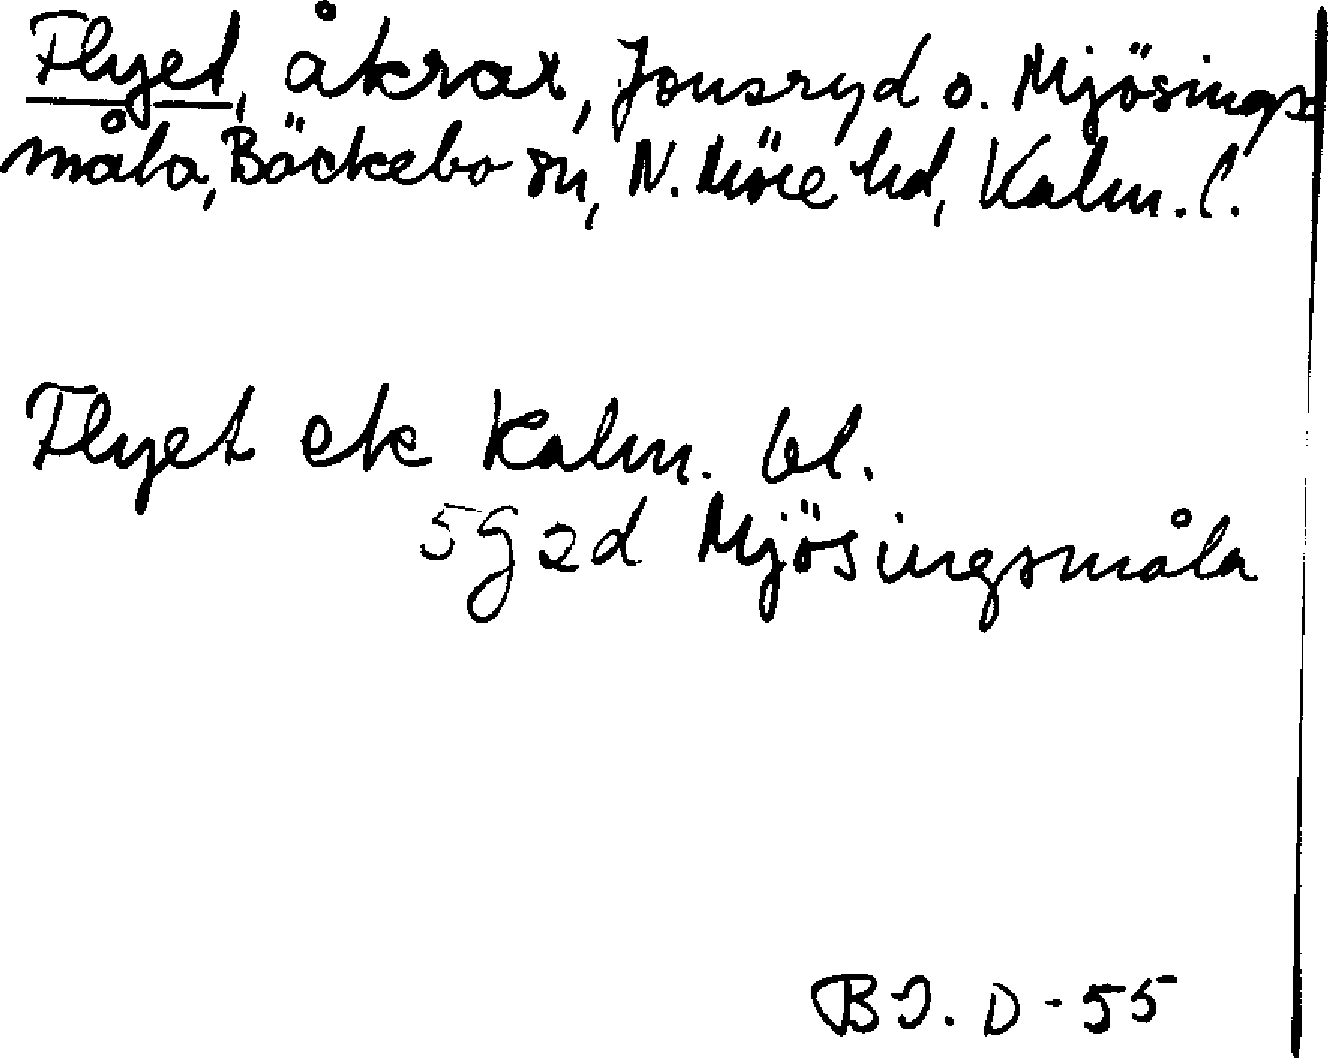 Flyet, åkrar, Jonsryd o. Mjösings
måla, Bäckebo sn, N. Möre hd, Kalm. l.
Flyet ek Kalm. bl.
5g2d Mjösingsmåla
BJ. D-55